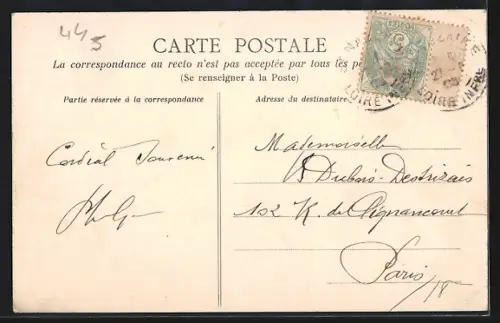 445
CARTE POSTALE
La correspondance au recto n'est pas acceptée par tous les
(Se renseigner à la Poste)
Partie réservée à la correspondance
Adresse du destinataire
LOIRE INFRE
Cordial Souvenir
Mademoiselle
Dubois-Destrizais
102 R. de Clignancourt
Paris